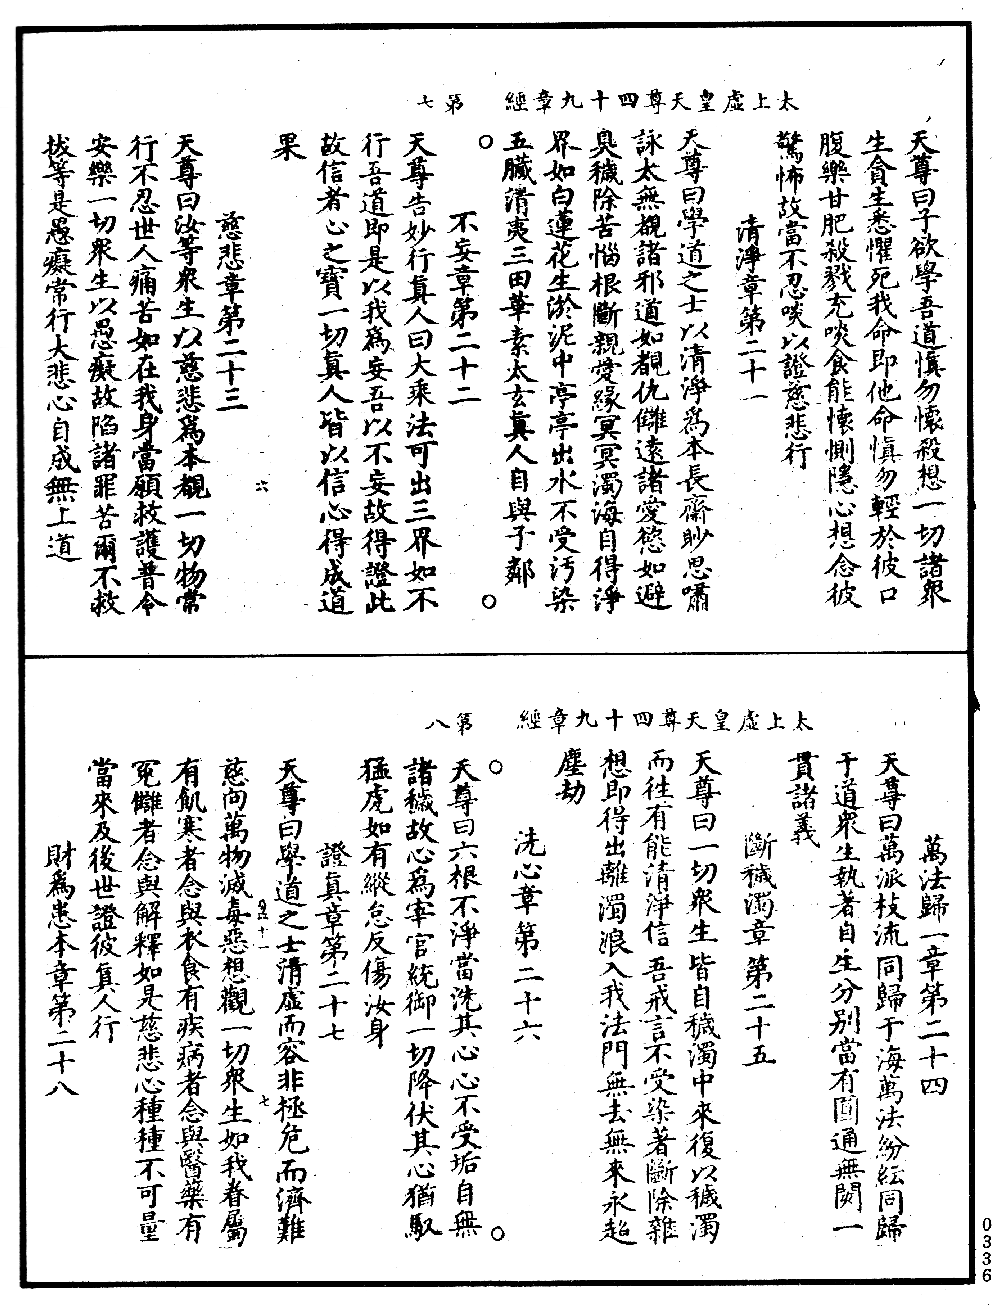 太上虛皇天尊四十九章經　第七
天尊曰子欲學吾道慎勿懷殺想一切諸衆
生貪生悉懼死我命即他命慎勿輕於彼口
腹樂甘肥殺戮充啖食能懷惻隱心想念彼
驚怖故當不忍啖以證慈悲行
清淨章第二十一
天尊曰學道之士以清淨爲本長齋眇思嘯
詠太無覩諸邪道如覩仇讎遠諸愛慾如避
臭穢除苦惱根斷親愛緣冥冥濁海自得淨
界如白蓮花生淤泥中亭亭出水不受污染
五臟清夷三田華素太玄真人自與子鄰
不妄章第二十二
天尊告妙行真人曰大乘法可出三界如不
行吾道即是以我爲妄吾以不妄故得證此
故信者心之寶一切真人皆以信心得成道
果
慈悲章第二十三
六
天尊曰汝等衆生以慈悲爲本覩一切物常
行不忍世人痛苦如在我身當願救護普令
安樂一切衆生以愚癡故陷諸罪苦爾不救
拔等是愚癡常行大悲心自成無上道
太上虛皇天尊四十九章經　第八
萬法歸一章第二十四
天尊曰萬派枝流同歸于海萬法紛紜同歸
于道衆生執著自生分別當有圓通無閡一
貫諸義
斷穢濁章第二十五
天尊曰一切衆生皆自穢濁中來復以穢濁
而往有能清淨信吾戒言不受染著斷除雜
想即得出離濁浪入我法門無去無來永超
塵劫
洗心章第二十六
天尊曰六根不淨當洗其心心不受垢自無
諸穢故心爲宰官統御一切降伏其心猶馭
猛虎如有縱怠反傷汝身
證真章第二十七
天尊曰學道之士清虛而容非極危而濟難
七
慈向萬物滅毒惡想觀一切衆生如我眷屬
有飢寒者念與衣食有疾病者念與醫藥有
冤讎者念與解釋如是慈悲心種種不可量
當來及後世證彼真人行
財爲患本章第二十八
0336